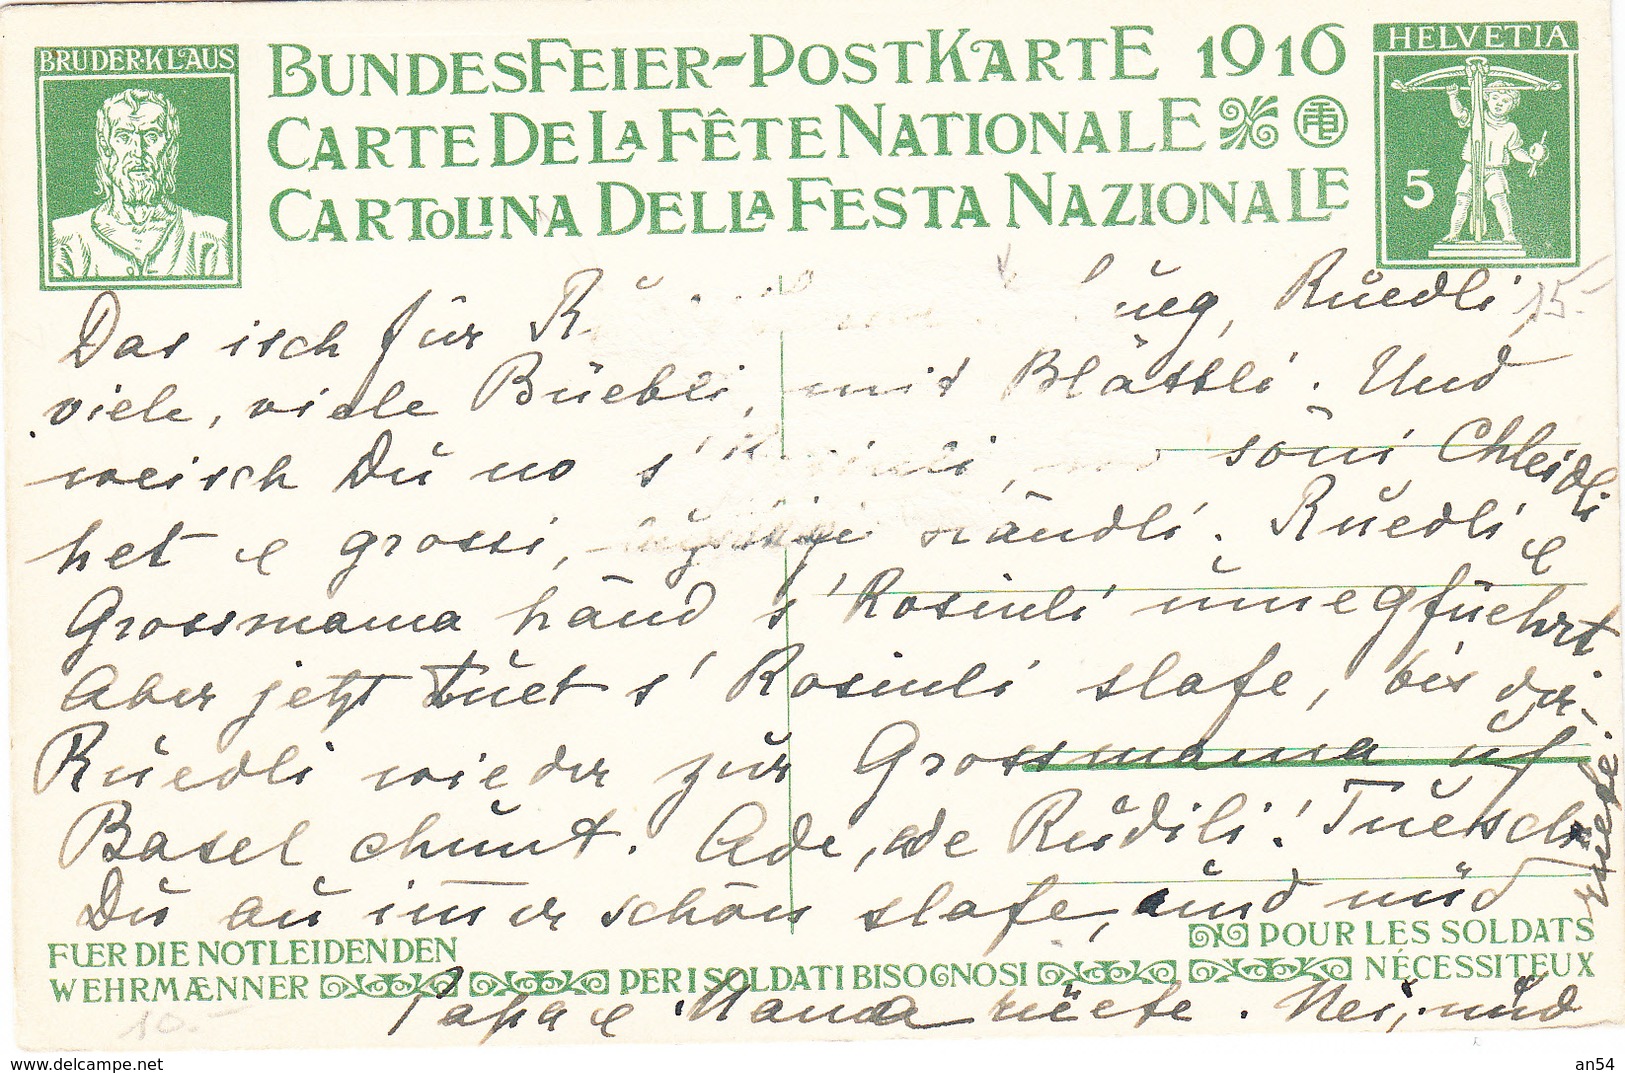 BRUDER·KLAUS
BUNDESFEIER-POSTKARTE 1916
CARTE DE LA FÊTE NATIONALE
CARTOLINA DELLA FESTA NAZIONALE
HELVETIA
5
15.-
Das isch für R lueg, Rüedli,
viele, viele Büebli, mit Blättli. Und
weisch Dŭ no s' söni Chleidli
het e grossi, ständli. Rŭedli e
Grossmama händ s' Rosinli ŭmegfüehrt
Aber jetzt tŭet s' Rosinli slafe, bis der
Rŭedli wieder zŭr Grossmama ŭf
Basel chŭnt. Ade, ade Rŭdili! Tŭesch
Dŭ aŭ immer schön slafe, ŭnd nüd
zruefe.
FUER DIE NOTLEIDENDEN
WEHRMÆNNER
PER I SOLDATI BISOGNOSI
POUR LES SOLDATS
NÉCESSITEUX
Papa e Mama rüefe. Nei, nüd
10.-
www.delcampe.net
an54